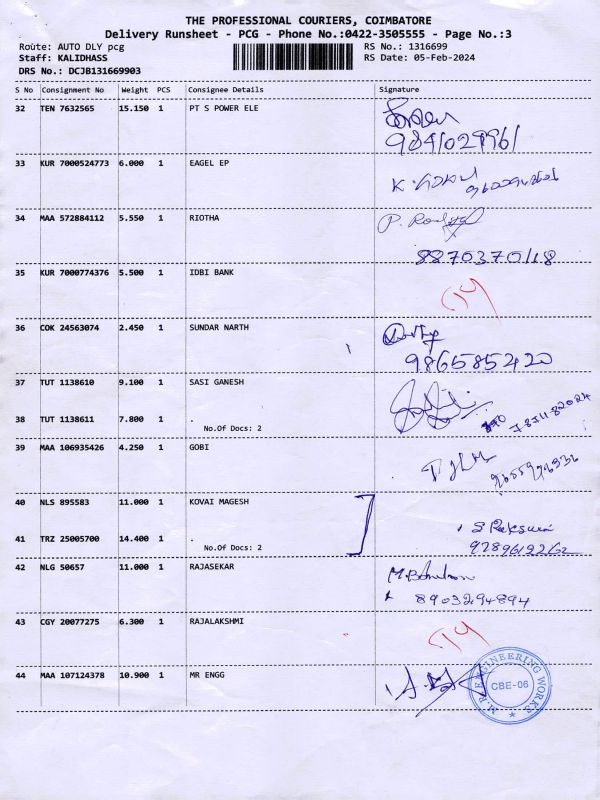 THE PROFESSIONAL COURIERS, COIMBATORE
Delivery Runsheet - PCG - Phone No.:0422-3505555 - Page No.:3
Route: AUTO DLY pcg RS No.: 1316699
Staff: KALIDHASS RS Date: 05-Feb-2024
DRS No.: DCJB131669903
S No Consignment No Weight PCS Consignee Details Signature
32 TEN 7632565 15.150 1 PT S POWER ELE
33 KUR 7000524773 6.000 1 EAGEL EP
34 MAA 572884112 5.550 1 RIOTHA
8870370118
35 KUR 7000774376 5.500 1 IDBI BANK
36 COK 24563074 2.450 1 SUNDAR NARTH
986585420
37 TUT 1138610 9.100 1 SASI GANESH
38 TUT 1138611 7.800 1 .
No.Of Docs: 2
39 MAA 106935426 4.250 1 GOBI
40 NLS 895583 11.000 1 KOVAI MAGESH
41 TRZ 25005700 14.400 1 .
No.Of Docs: 2
42 NLG 50657 11.000 1 RAJASEKAR
8903294894
43 CGY 20077275 6.300 1 RAJALAKSHMI
44 MAA 107124378 10.900 1 MR ENGG
M.R ENGINEERING WORKS
CBE-06